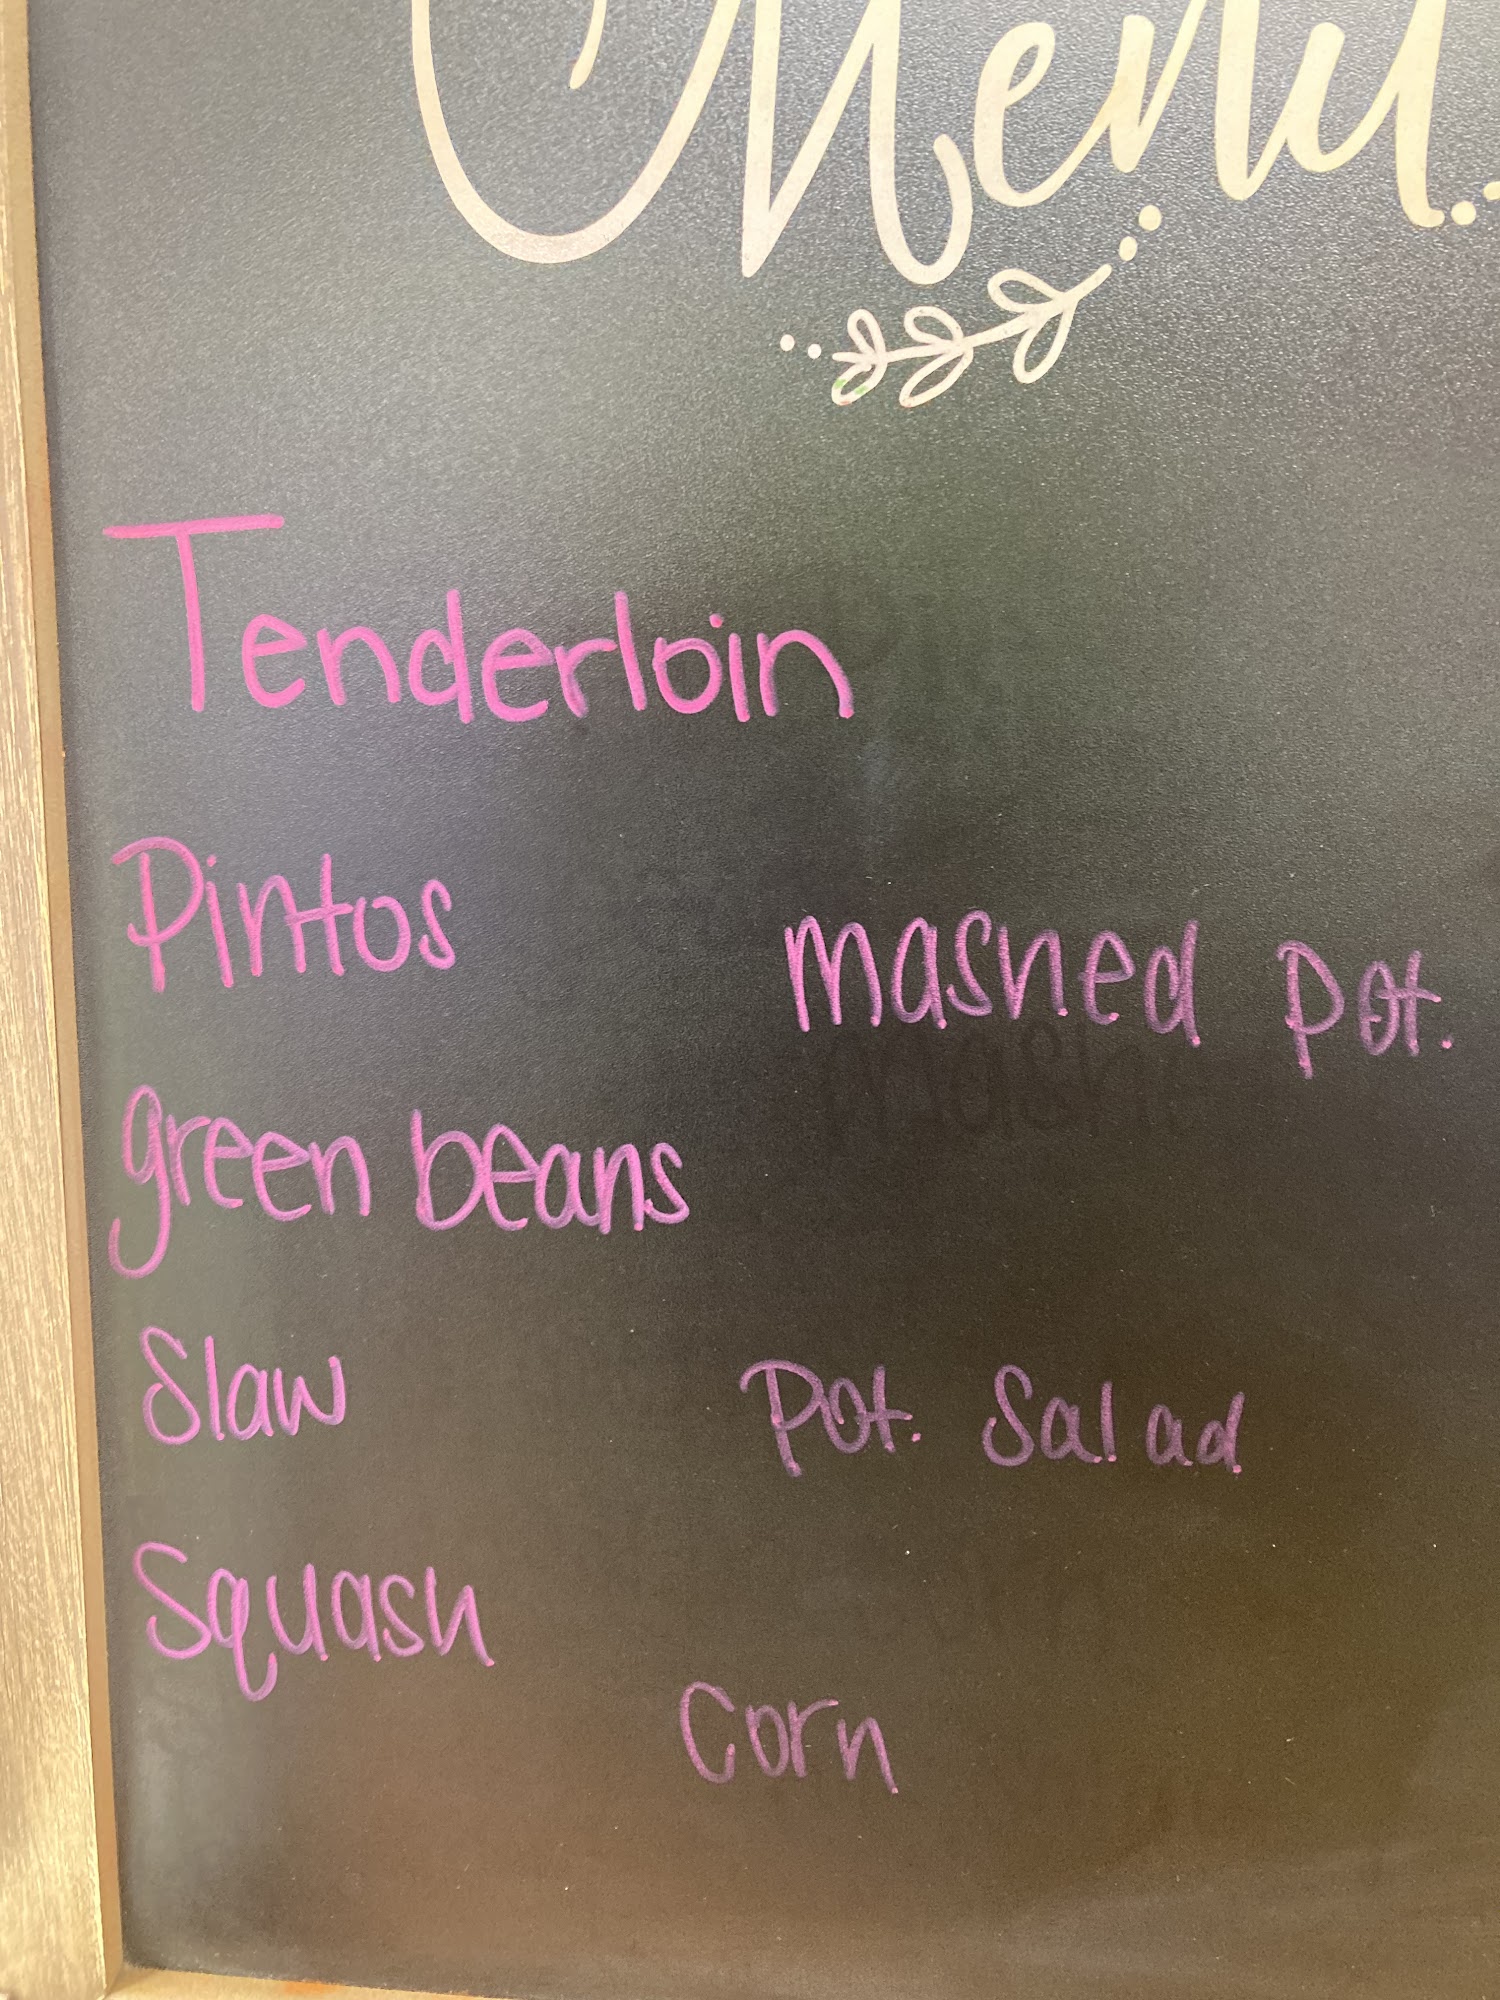 Menu
Tenderloin
Pintos
mashed pot.
green beans
Slaw
Pot. Salad
Squash
Corn